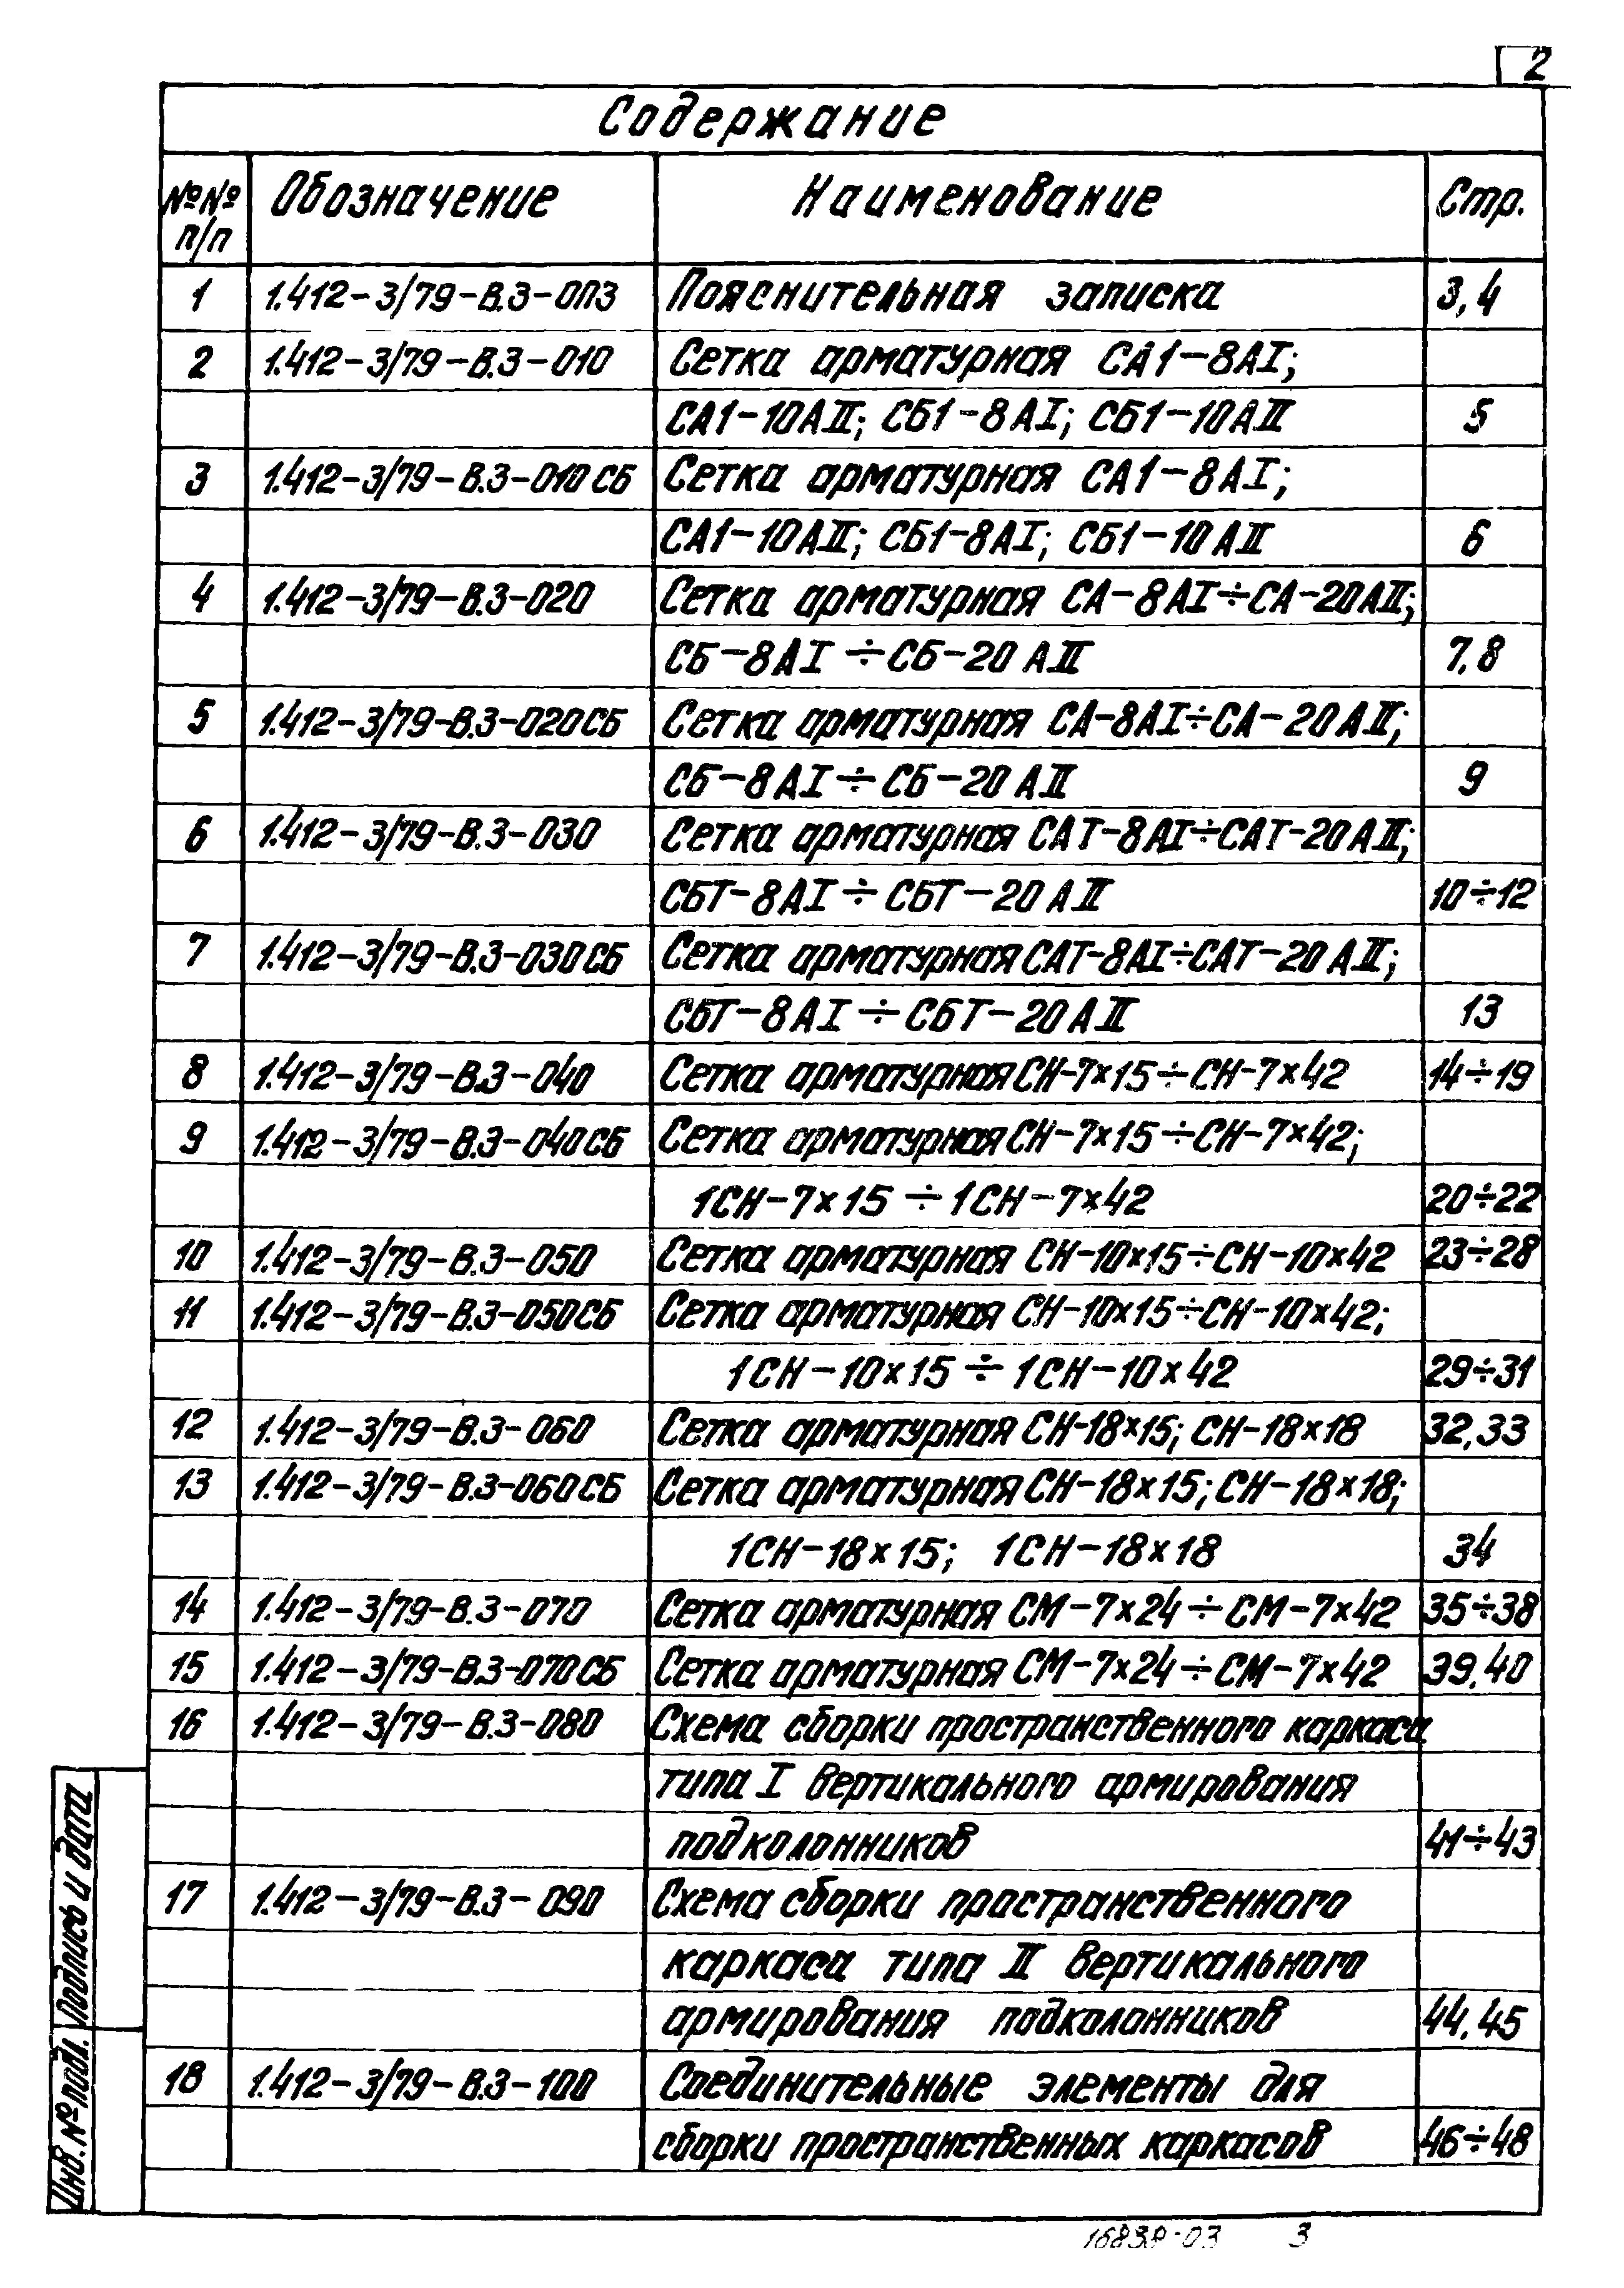 2
Содержание
№№ п/п Обозначение Наименование Стр.
1 1.412-3/79-В.3-0ПЗ Пояснительная записка 3,4
2 1.412-3/79-В.3-010 Сетка арматурная СА1-8АI;
СА1-10АII; СБ1-8АI; СБ1-10АII 5
3 1.412-3/79-В.3-010СБ Сетка арматурная СА1-8АI;
СА1-10АII; СБ1-8АI; СБ1-10АII 6
4 1.412-3/79-В.3-020 Сетка арматурная СА-8АI÷СА-20АII;
СБ-8АI÷СБ-20АII 7,8
5 1.412-3/79-В.3-020СБ Сетка арматурная СА-8АI÷СА-20АII;
СБ-8АI÷СБ-20АII 9
6 1.412-3/79-В.3-030 Сетка арматурная САТ-8АI÷САТ-20АII;
СБТ-8АI÷СБТ-20АII 10÷12
7 1.412-3/79-В.3-030СБ Сетка арматурная САТ-8АI÷САТ-20АII;
СБТ-8АI÷СБТ-20АII 13
8 1.412-3/79-В.3-040 Сетка арматурная СН-7×15÷СН-7×42 14÷19
9 1.412-3/79-В.3-040СБ Сетка арматурная СН-7×15÷СН-7×42;
1СН-7×15÷1СН-7×42 20÷22
10 1.412-3/79-В.3-050 Сетка арматурная СН-10×15÷СН-10×42 23÷28
11 1.412-3/79-В.3-050СБ Сетка арматурная СН-10×15÷СН-10×42;
1СН-10×15÷1СН-10×42 29÷31
12 1.412-3/79-В.3-060 Сетка арматурная СН-18×15; СН-18×18 32,33
13 1.412-3/79-В.3-060СБ Сетка арматурная СН-18×15; СН-18×18;
1СН-18×15; 1СН-18×18 34
14 1.412-3/79-В.3-070 Сетка арматурная СМ-7×24÷СМ-7×42 35÷38
15 1.412-3/79-В.3-070СБ Сетка арматурная СМ-7×24÷СМ-7×42 39,40
16 1.412-3/79-В.3-080 Схема сборки пространственного каркаса
типа I вертикального армирования
подколонников 41÷43
17 1.412-3/79-В.3-090 Схема сборки пространственного
каркаса типа II вертикального
армирования подколонников 44,45
18 1.412-3/79-В.3-100 Соединительные элементы для
сборки пространственных каркасов 46÷48
Инв. № подл. Подпись и дата
16838-03 3